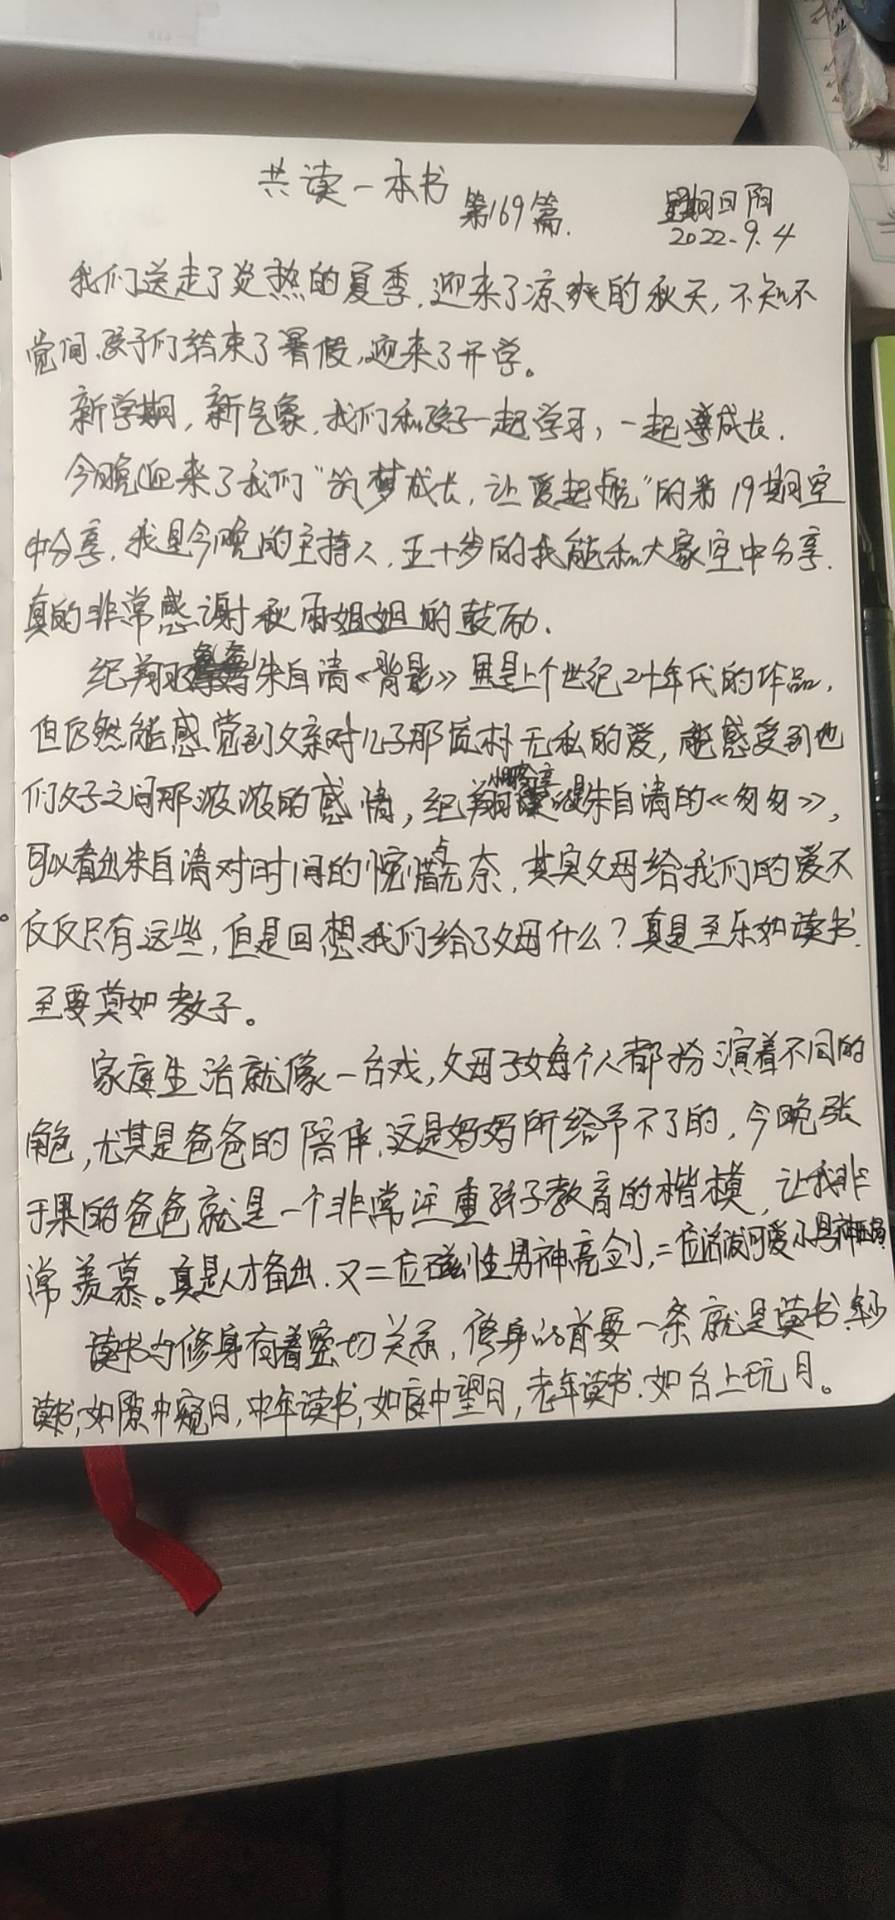 共读一本书
第169篇.
星期日阴
2022.9.4
我们送走了炎热的夏季,迎来了凉爽的秋天,不知不
觉间,孩子们结束了暑假,迎来了开学。
新学期,新气象,我们和孩子一起学习,一起成长.
今晚迎来了我们"筑梦成长,让爱起航"的第19期空
中分享,我是今晚的主持人,五十岁的我能和大家空中分享.
真的非常感谢秋雨姐姐的鼓励.
纪翔朱自清《背影》虽是上个世纪20年代的作品,
但仍然能感觉到父亲对儿子那质朴无私的爱,能感受到他
们父子之间那浓浓的感情,纪翔分享的是朱自清的《匆匆》,
可以看出朱自清对时间的惋惜点无奈,其实父母给我们的爱不
仅仅只有这些,但是回想我们给了父母什么?真是至乐如读书.
至要莫如教子。
家庭生活就像一台戏,父母子女每个人都扮演着不同的
角色,尤其是爸爸的陪伴,这是妈妈所给予不了的,今晚张
于果的爸爸就是一个非常注重孩子教育的楷模,让我非
常羡慕。真是人才备出.又二位磁性男神亮剑,二位活泼可爱小男神
读书与修身有着密切关系,修身的首要一条就是读书,少
读书,如隙中窥月,中年读书,如庭中望月,老年读书.如台上玩月。